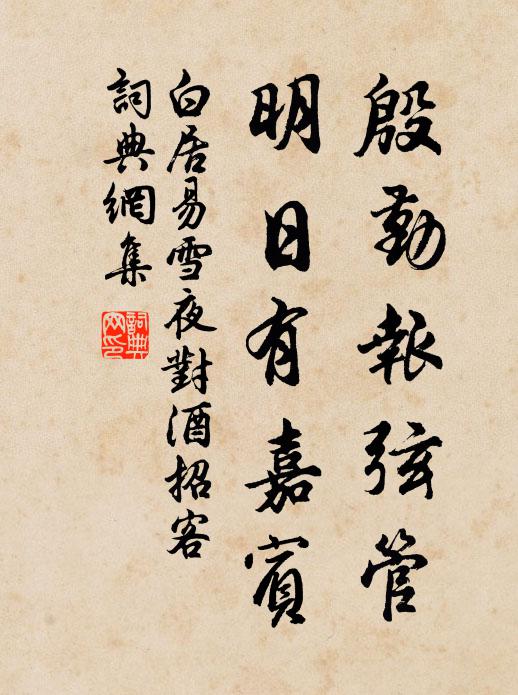 殷勤報弦管
明日有嘉賓
白居易雪夜對酒招客
詞典網集
詞典網印